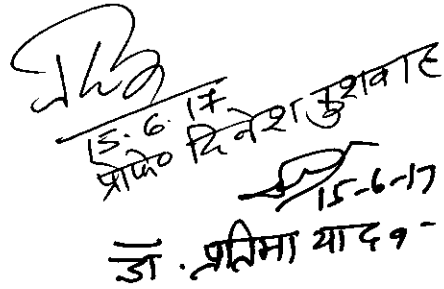 15.6.17
प्रोफे० दिनेश कुशवाह
15-6-17
डा. प्रतिमा यादव